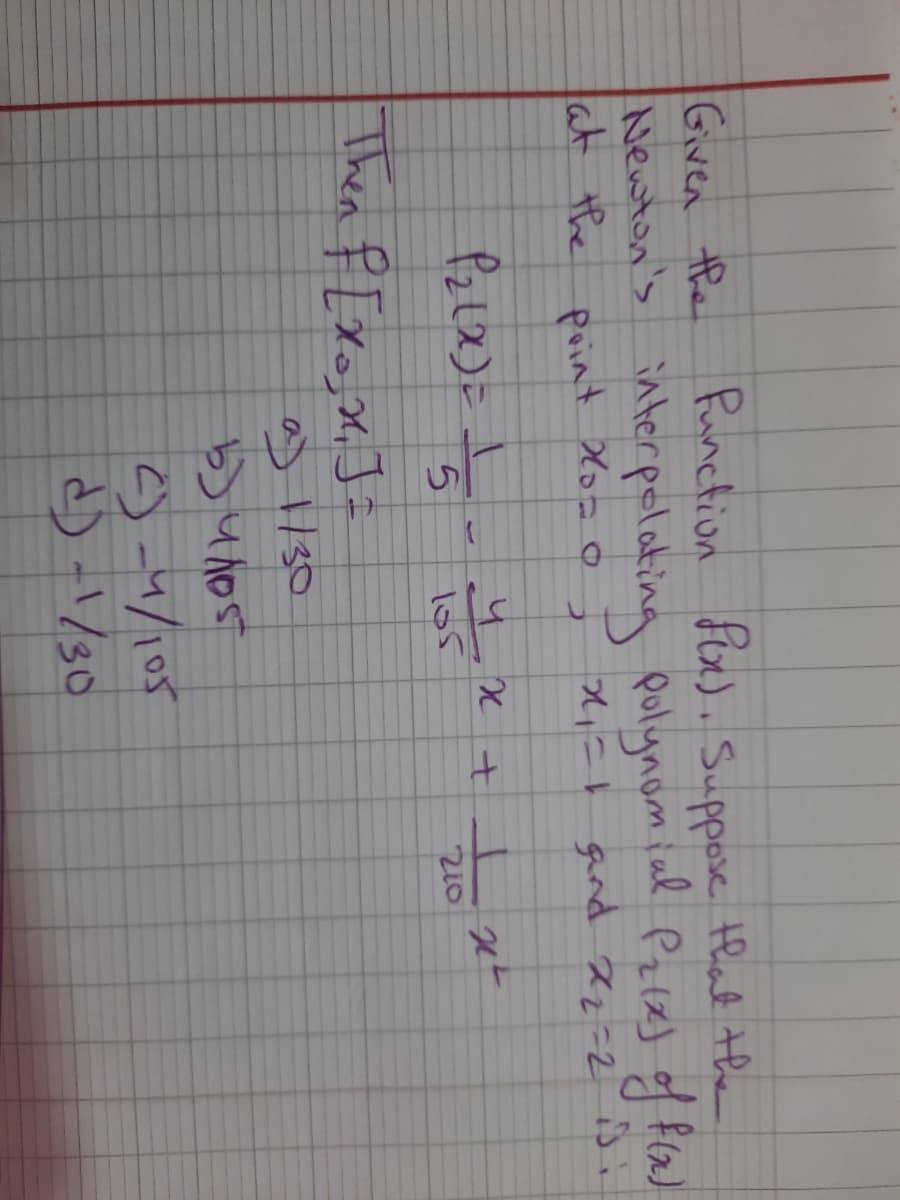 Given the function f(x). Suppose that the
Newton's interpolating polynomial P₂(x) of f(x)
at the point x₀ = 0, x₁ = 1 and x₂ = 2 is:
P₂(x) = 1/5 - 4/105 x + 1/210 x²
Then f[x₀, x₁] =
a) 1/30
b) 4/105
c) -4/105
d) -1/30